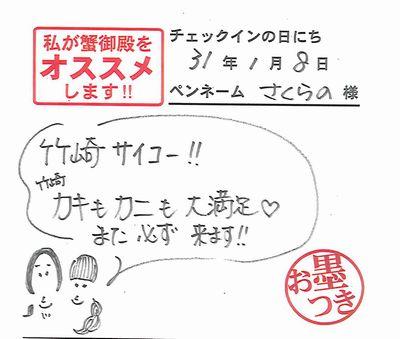 私が蟹御殿を
オススメ
します!!
チェックインの日にち
31年1月8日
ペンネーム さくらの 様
竹崎 サイコー!!
竹崎
カキも カニも 大満足♡
また 必ず 来ます!!
お墨つき